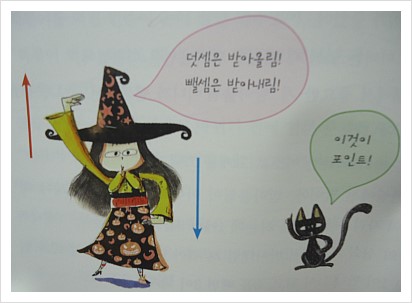 덧셈은 받아올림!
뺄셈은 받아내림!
이것이
포인트!